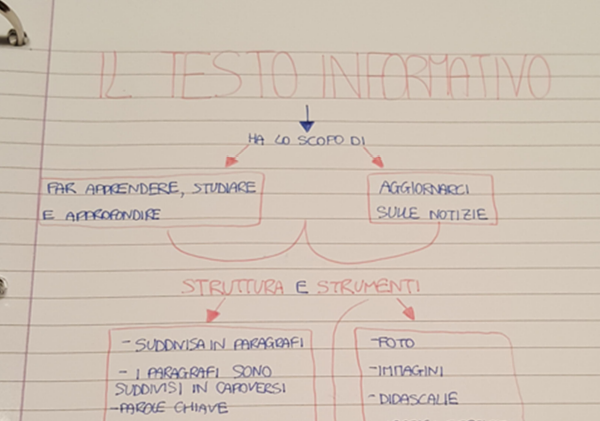 IL TESTO INFORMATIVO
HA LO SCOPO DI
FAR APPRENDERE, STUDIARE
E APPROFONDIRE
AGGIORNARCI
SULLE NOTIZIE
STRUTTURA E STRUMENTI
- SUDDIVISA IN PARAGRAFI
- I PARAGRAFI SONO
SUDDIVISI IN CAPOVERSI
- PAROLE CHIAVE
- FOTO
- IMMAGINI
- DIDASCALIE